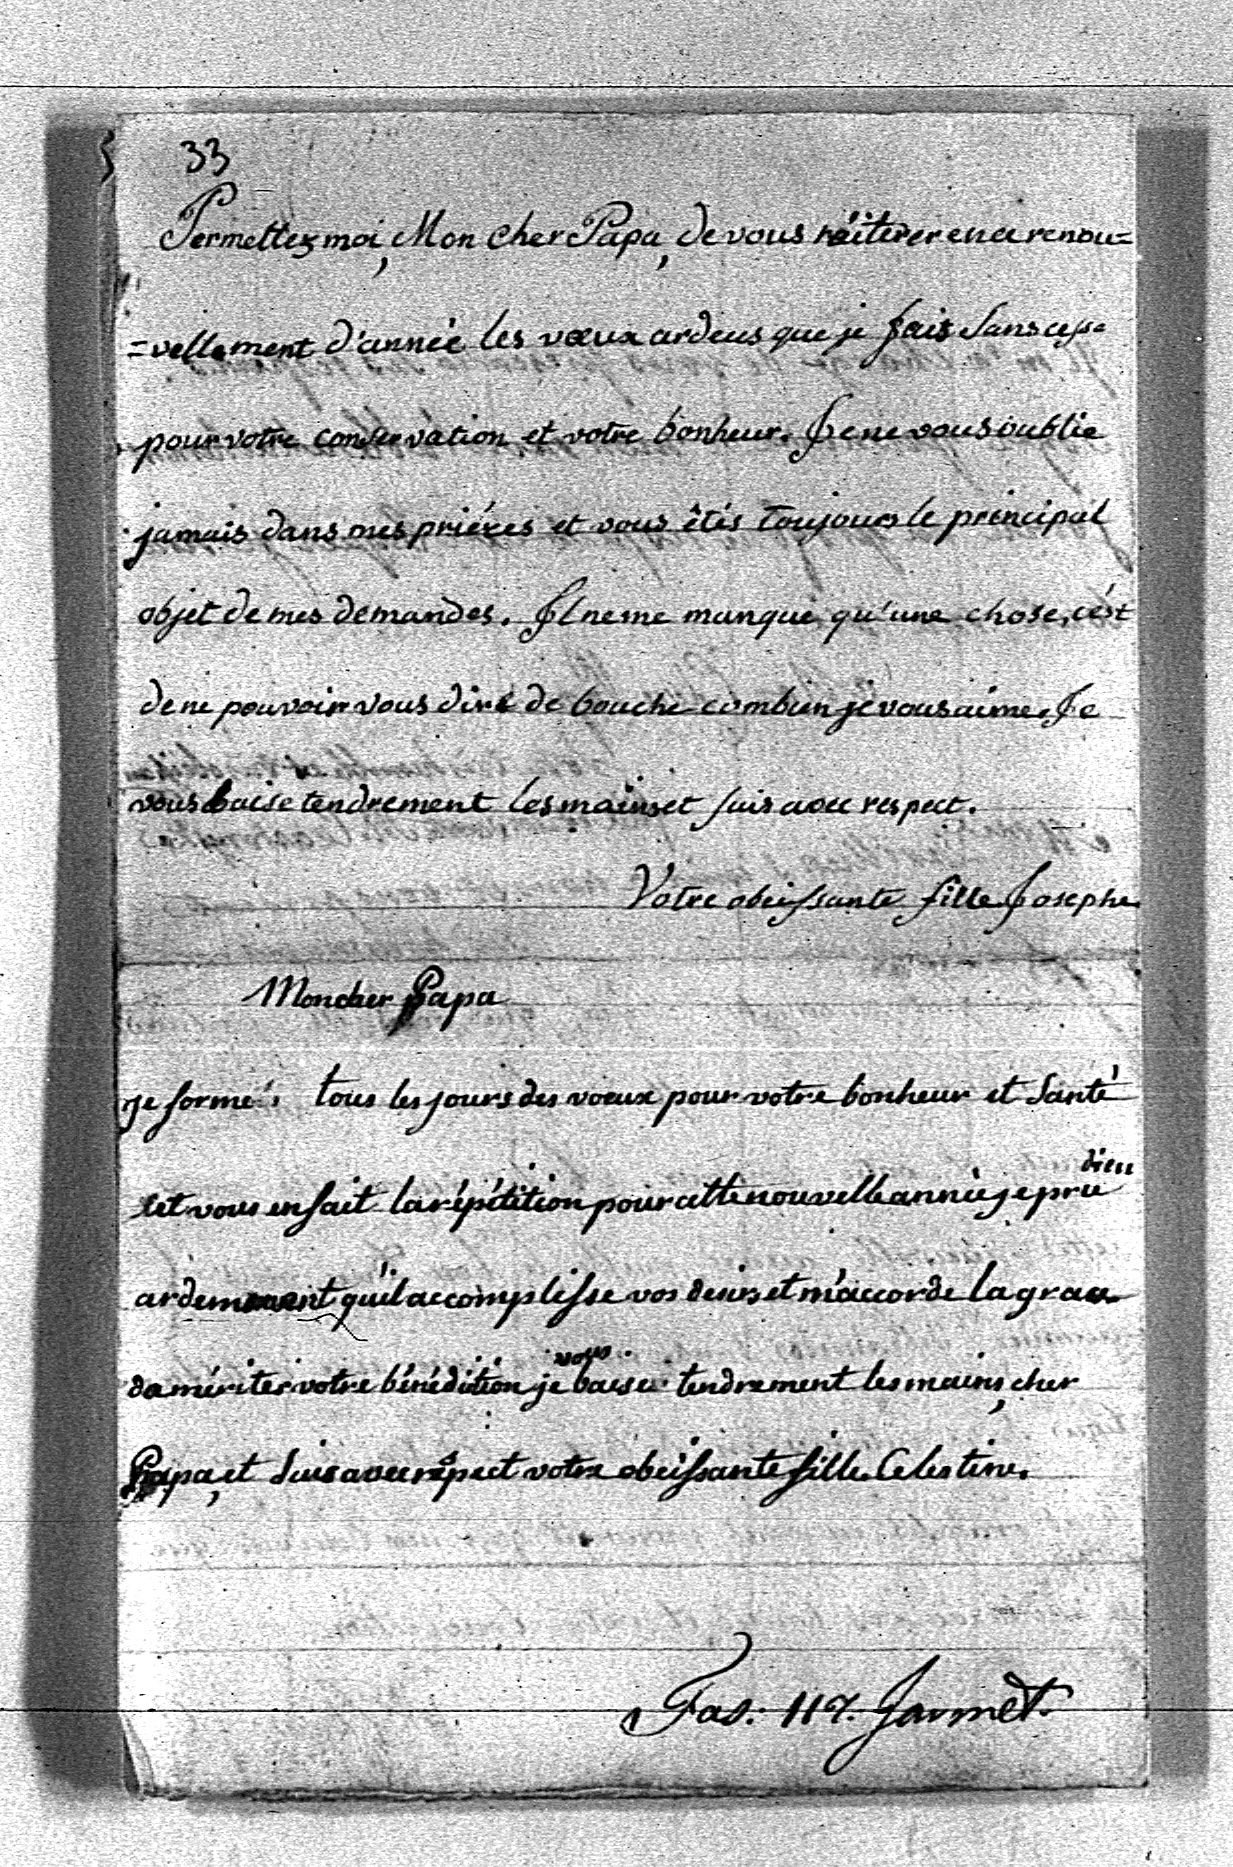 33
Permettez moi, Mon cher Papa, de vous réiterer en ce renou=
=vellement d'année les vœux ardens que je fais sans cesse
pour votre conservation et votre bonheur. Je ne vous oublie
jamais dans mes priéres et vous êtés toujours le principal
objet de mes demandes. Il ne me manque qu'une chose, c'ést
de ne pouvoir vous dire de bouche combien je vous aime. Je
vous baise tendrement les mains et suis avec respect.
Votre obeissante fille Josephe
Mon cher Papa
je forme tous les jours des voeux pour votre bonheur et santé
et vous en fait la répétition pour cette nouvelle année je prie dieu
ardemment qu'il accomplisse vos desirs et m'accorde la grace
de mériter votre bénédition je vous baise tendrement les mains, cher
Papa, et suis avec respect votre obeissante fille Celestine.
Fas: 117.